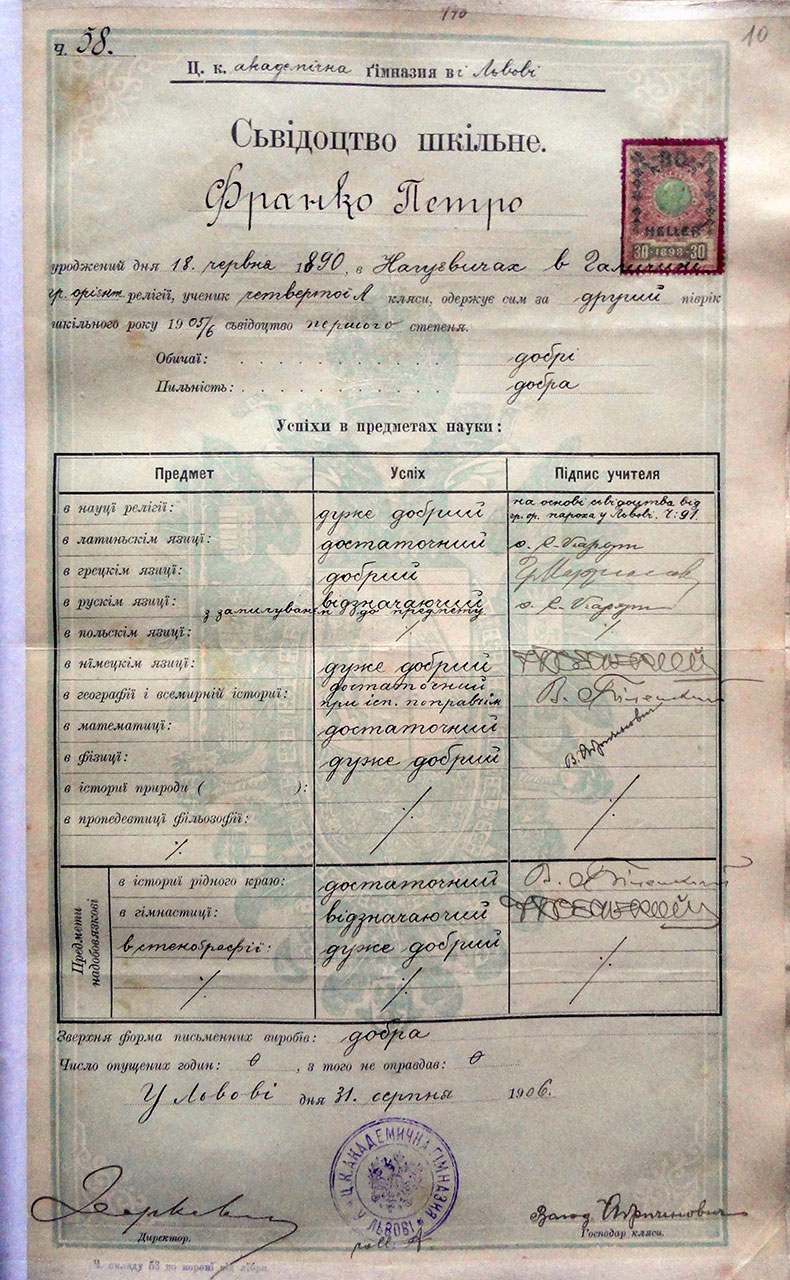 190
10
Ч. 58.
Ц. к. академічна ґімназия ві Львові
Сьвідоцтво шкільне.
Франко Петро
30
HELLER
30 1898 30
уроджений дня 18. червня 1890, в Нагуевичах в Галичині
гр. орієнт. релігії, ученик четвертої А кляси, одержує сим за другий піврік
шкільного року 1905/6 сьвідоцтво першого степеня.
Обичаї: добрі
Пильність: добра
Успіхи в предметах науки:
Предмет Успіх Підпис учителя
в науці релігії: дуже добрий на основі сьвідоцтва від
гр. ор. пароха у Львові. Ч: 91.
в латиньскім язиці: достаточний
в грецкім язиці: добрий
в рускім язиці: відзначаючий
з замилуванєм до предмету
в польскім язиці: ⁒ ⁒
в німецкім язиці: дуже добрий
в ґеоґрафії і всемирній істориї: достаточний
при ісп. поправчім
в математиці: достаточний
в фізиці: дуже добрий
в істориї природи ( ):
в пропедевтиці фільозофії: ⁒ ⁒
⁒
Предмети надобовязкові
в істориї рідного краю: достаточний
в ґімнастиці: відзначаючий
в стеноґрафії: дуже добрий
⁒ ⁒ ⁒
Зверхня форма письменних виробів: добра
Число опущених годин: 0, з того не оправдав: 0
У Львові дня 31. серпня 1906.
Ц.К.АКАДЕМИЧНА ГІМНАЗИЯ У ЛЬВОВІ
Директор.
Господар кляси.
Ч. складу 53 по